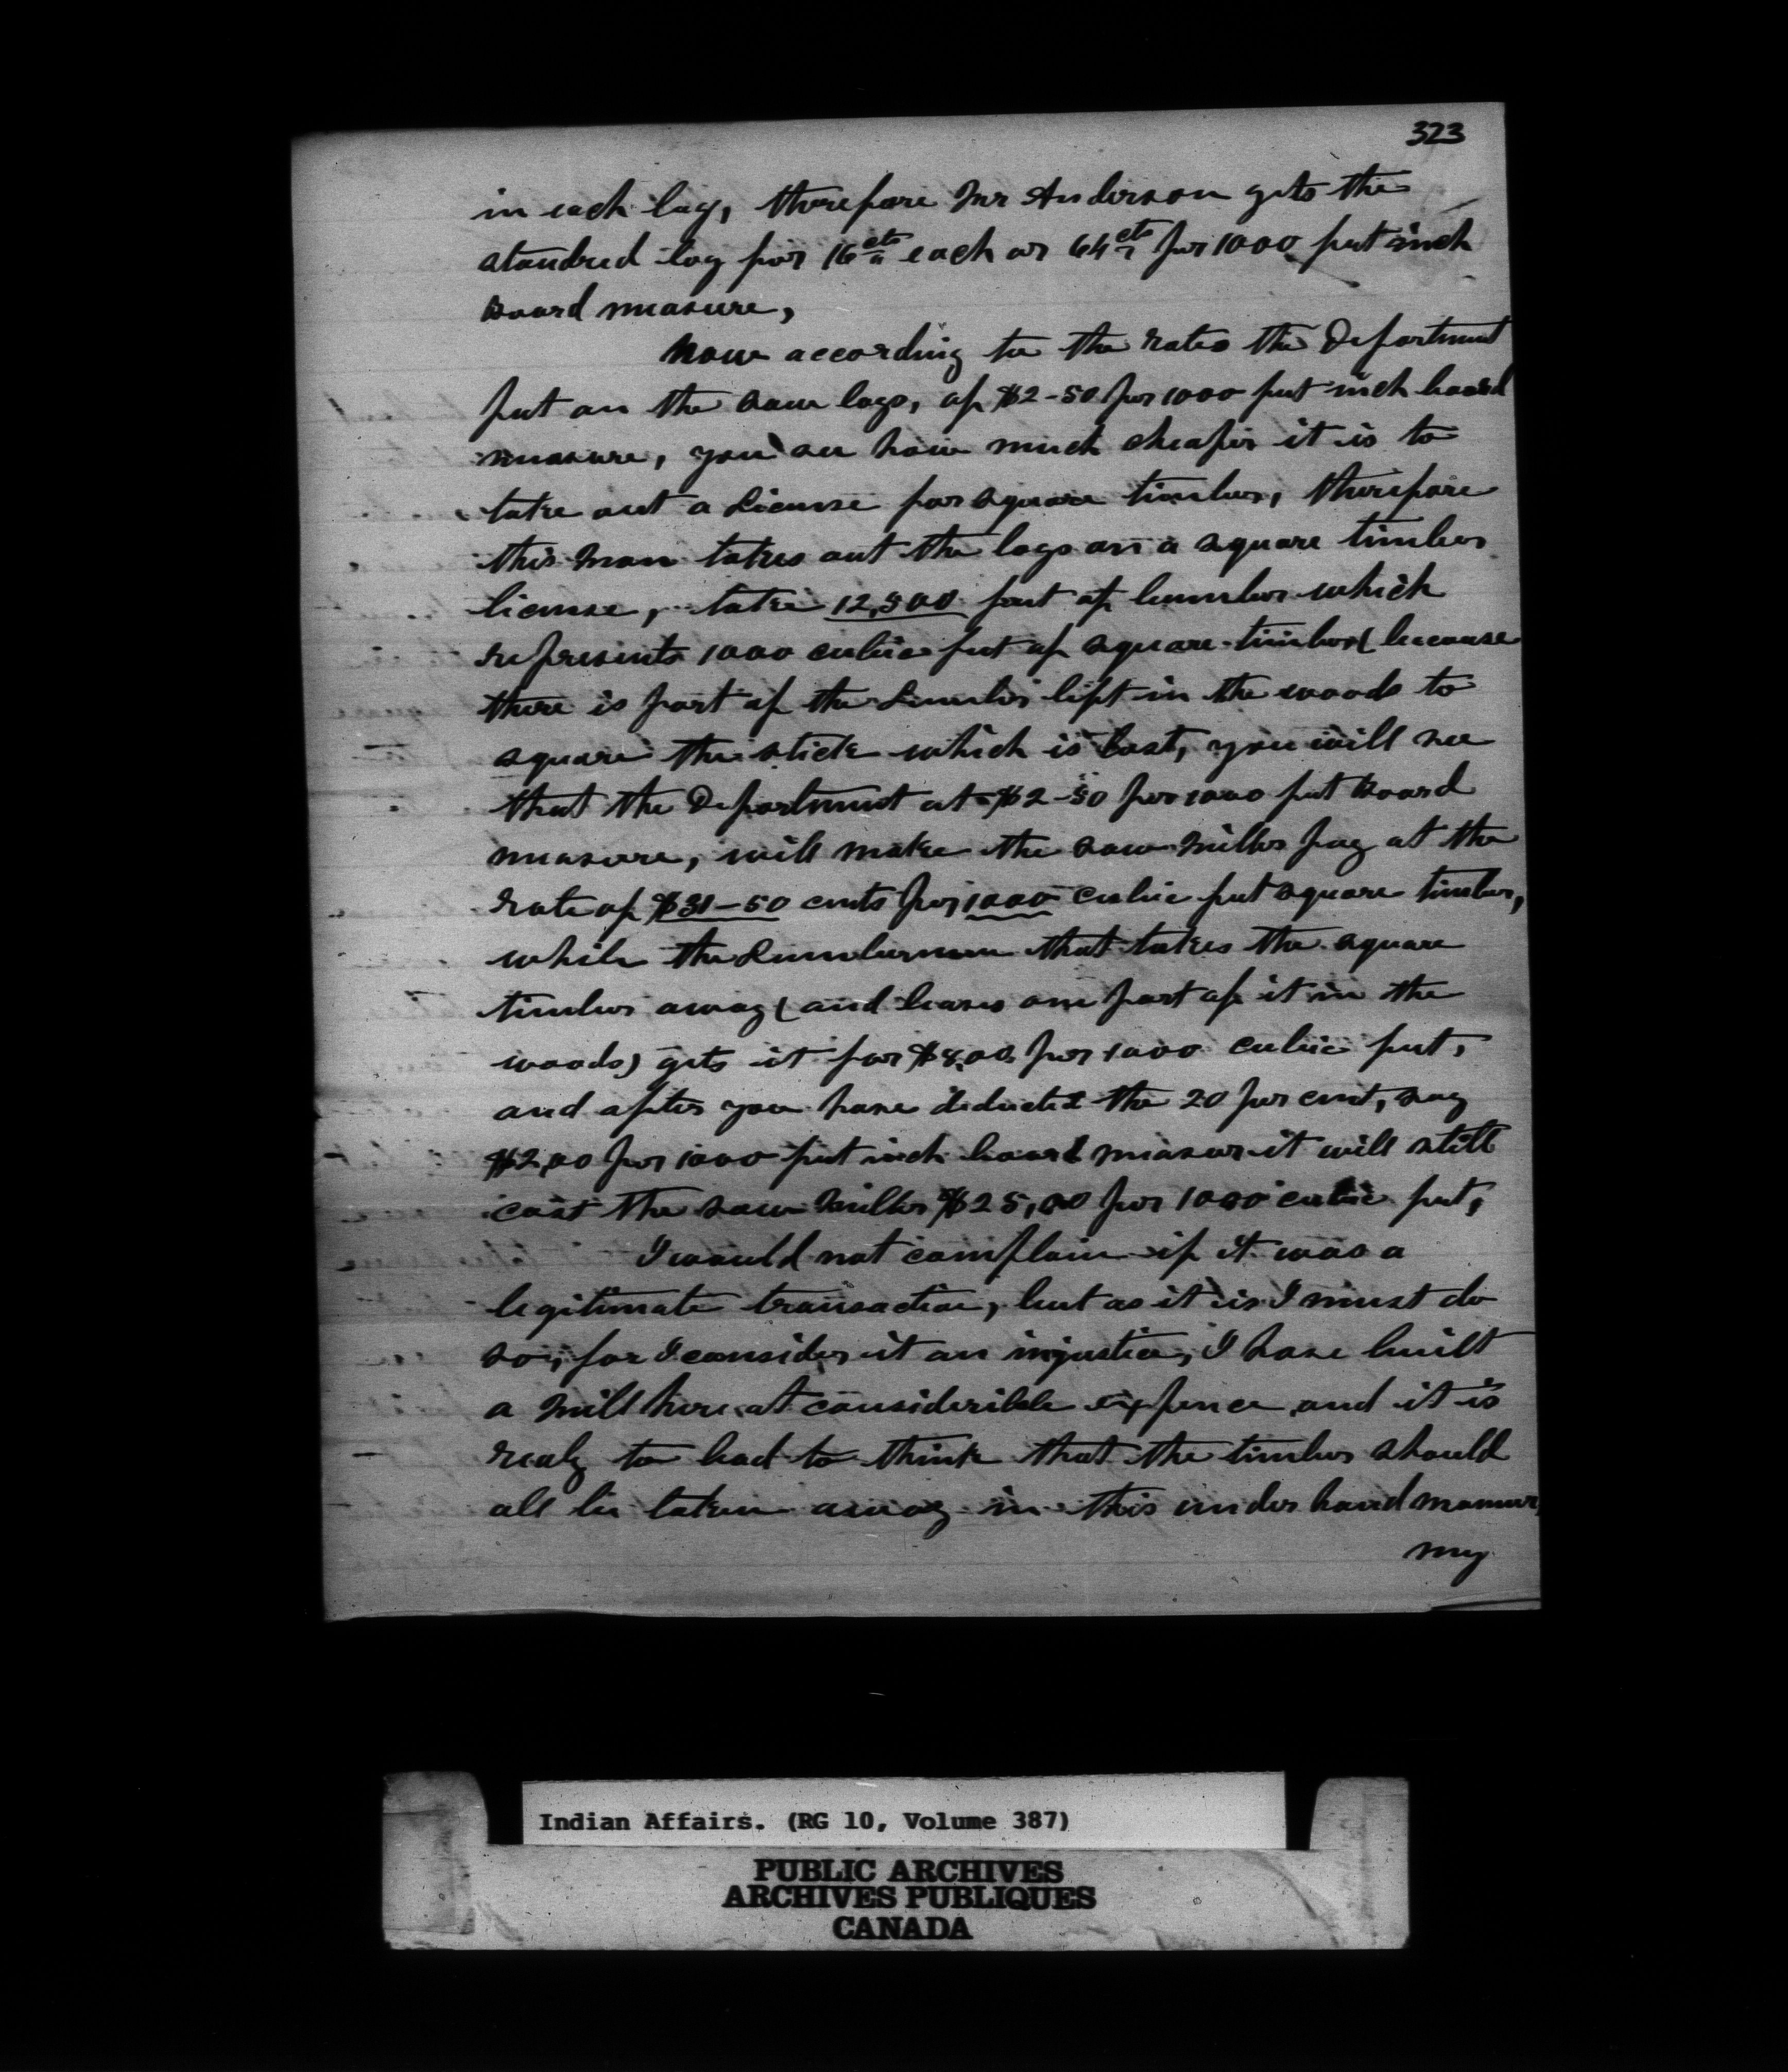 323
in each log, therefore Mr Anderson gets the
standred log for 16cts each or 64cts per 1000 feet inch
Board measure,
Now according to the rates the Department
put on the saw logs, of $2-50 per 1000 feet inch board
measure, you see how much cheaper it is to
take out a License for square timber, therefore
this man takes out the logs on a square timber
license, take 12,500 feet of lumber which
represents 1000 cubic feet of square timber (because
there is part of the Lumber left in the woods to
square the stick which is lost, you will see
that the Department at $2-50 per 1000 feet Board
measure, will make the saw miller pay at the
rate of $31-50 cents per 1000 cubic feet square timber,
while the Lumberman that takes the square
timber away (and leaves one part of it in the
woods) gets it for $8,00 per 1000 cubic feet,
and after you have deducted the 20 per cent, say
$2,00 per 1000 feet inch board measur it will still
cost the saw miller $25,00 per 1000 cubic feet,
I would not complain if it was a
legitimate transaction, but as it is I must do
so, for I consider it an injustice, I have built
a mill here at considerible expence and it is
realy to bad to think that the timber should
all be taken away in this under hand manner,
my
Indian Affairs. (RG 10, Volume 387)
PUBLIC ARCHIVES
ARCHIVES PUBLIQUES
CANADA